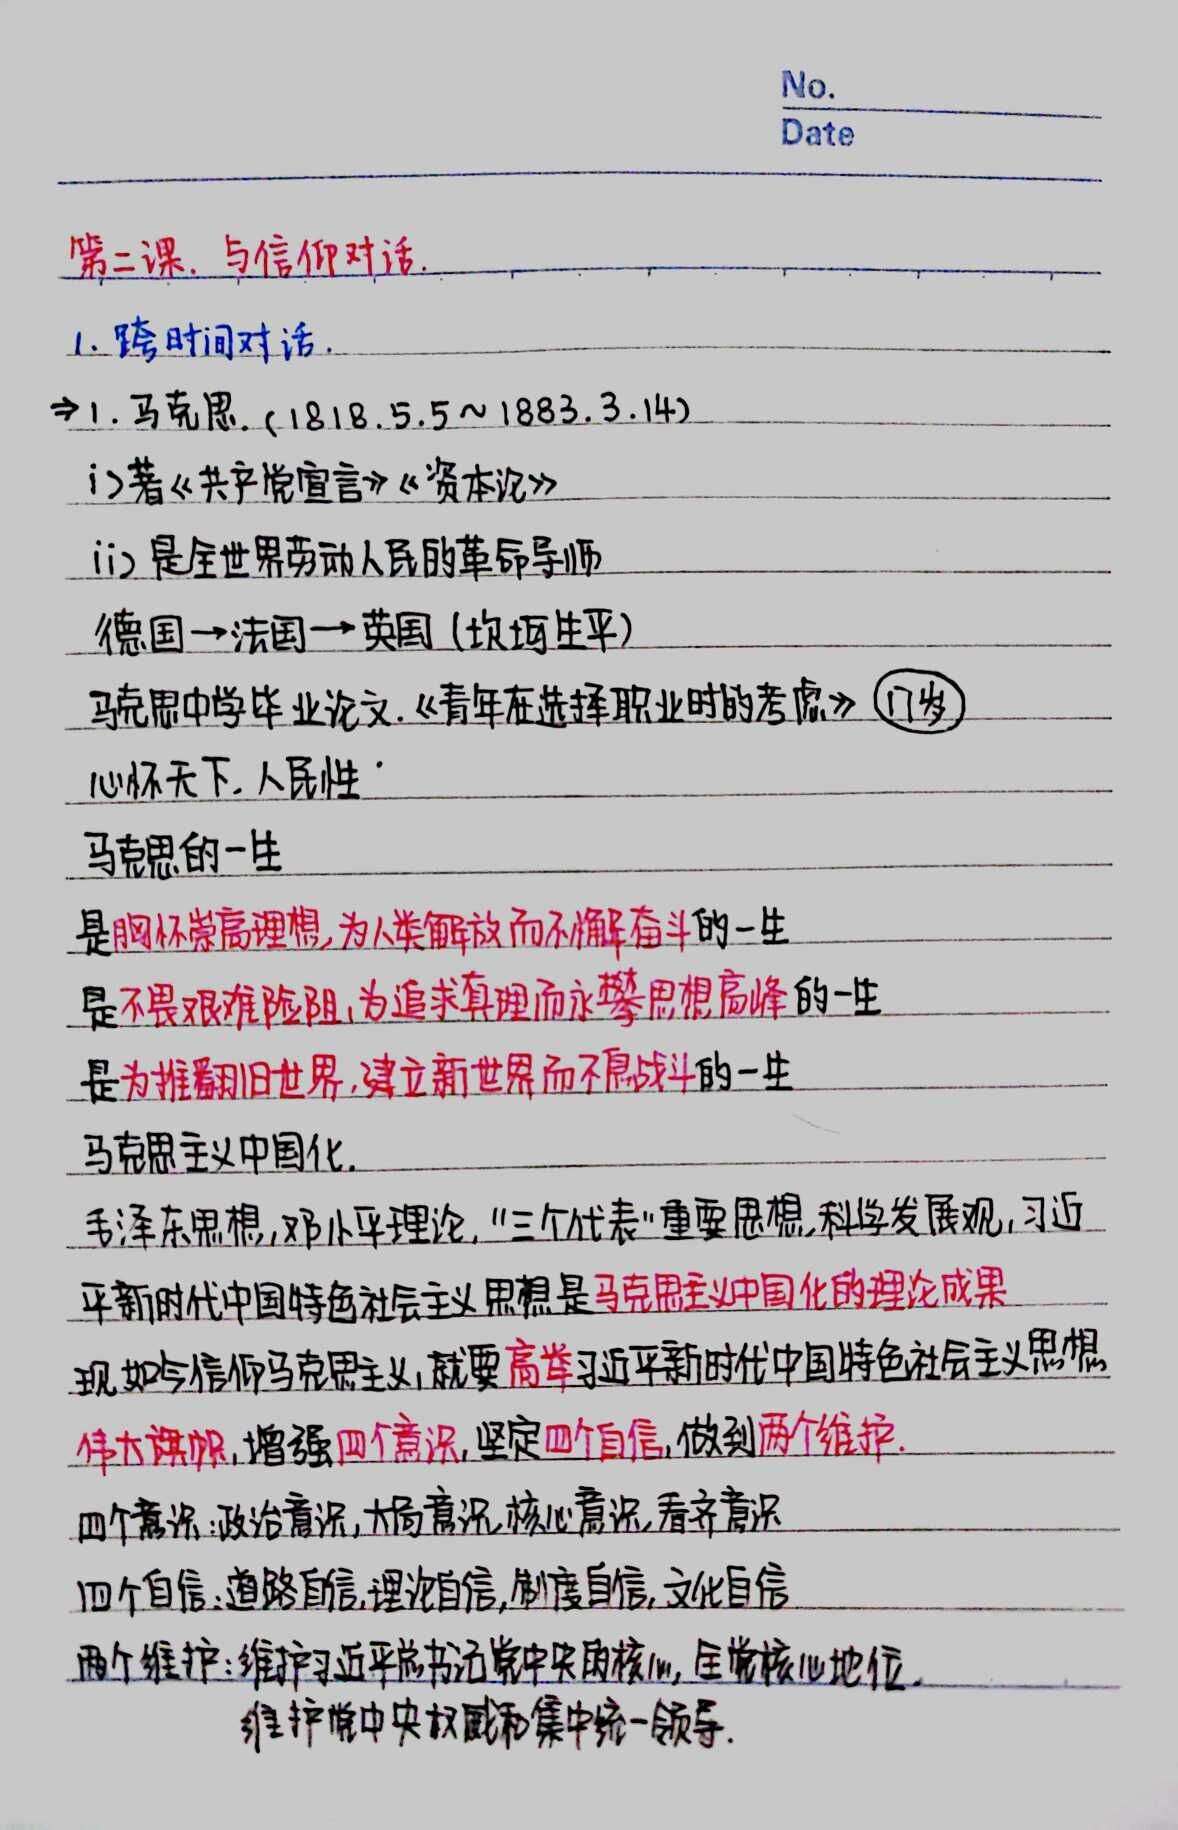 No.
Date
第二课. 与信仰对话.
1. 跨时间对话.
⇒1. 马克思. (1818.5.5~1883.3.14)
i>著《共产党宣言》《资本论》
ii> 是全世界劳动人民的革命导师
德国→法国→英国 (坎坷生平)
马克思中学毕业论文.《青年在选择职业时的考虑》 17岁
心怀天下. 人民性
马克思的一生
是胸怀崇高理想,为人类解放而不懈奋斗的一生
是不畏艰难险阻,为追求真理而永攀思想高峰的一生
是为推翻旧世界,建立新世界而不息战斗的一生
马克思主义中国化.
毛泽东思想,邓小平理论,"三个代表"重要思想,科学发展观,习近
平新时代中国特色社会主义思想是马克思主义中国化的理论成果
现如今信仰马克思主义,就要高举习近平新时代中国特色社会主义思想
伟大旗帜,增强四个意识,坚定四个自信,做到两个维护.
四个意识:政治意识,大局意识,核心意识,看齐意识
四个自信:道路自信,理论自信,制度自信,文化自信
两个维护:维护习近平总书记党中央的核心,全党核心地位.
维护党中央权威和集中统一领导.